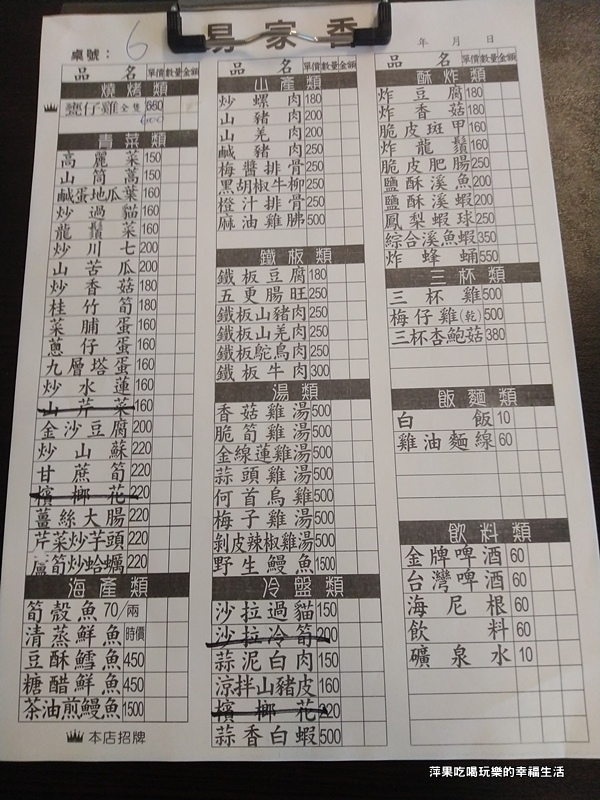 易家香
桌號： 6
年 月 日
品名 單價 數量 金額
燒烤類
甕仔雞 全隻 660
600
青菜類
高麗菜 150
山茼蒿 150
鹹蛋地瓜葉 160
炒過貓 160
龍鬚菜 160
炒川七 200
山苦瓜 200
炒香菇 180
桂竹筍 180
菜脯蛋 160
蔥仔蛋 160
九層塔蛋 160
炒水蓮 160
山芹菜 160
金沙豆腐 200
炒山蘇 220
甘蔗筍 220
檳榔花 220
薑絲大腸 220
芹菜炒芋頭 220
蘆筍炒蛤蠣 220
海產類
筍殼魚 70/兩
清蒸鮮魚 時價
豆酥鱈魚 450
糖醋鮮魚 450
茶油煎鰻魚 1500
本店招牌
品名 單價 數量 金額
山產類
炒螺肉 180
山豬肉 200
山羌肉 200
鹹豬肉 250
梅醬排骨 250
黑胡椒牛柳 250
橙汁排骨 250
麻油雞胇 500
鐵板類
鐵板豆腐 180
五更腸旺 250
鐵板山豬肉 250
鐵板山羌肉 250
鐵板鴕鳥肉 250
鐵板牛肉 300
湯類
香菇雞湯 500
脆筍雞湯 500
金線蓮雞湯 500
蒜頭雞湯 500
何首烏雞 500
梅子雞湯 500
剝皮辣椒雞湯 500
野生鰻魚 1500
冷盤類
沙拉過貓 150
沙拉冷筍 200
蒜泥白肉 150
涼拌山豬皮 160
檳榔花 220
蒜香白蝦 500
品名 單價 數量 金額
酥炸類
炸豆腐 180
炸香菇 180
脆皮斑甲 160
炸龍鬚 160
脆皮肥腸 250
鹽酥溪魚 200
鹽酥溪蝦 200
鳳梨蝦球 250
綜合溪魚蝦 350
炸蜂蛹 550
三杯類
三杯雞 500
梅仔雞(乾) 500
三杯杏鮑菇 380
飯麵類
白飯 10
雞油麵線 60
飲料類
金牌啤酒 60
台灣啤酒 60
海尼根 60
飲料 60
礦泉水 10
萍果吃喝玩樂的幸福生活